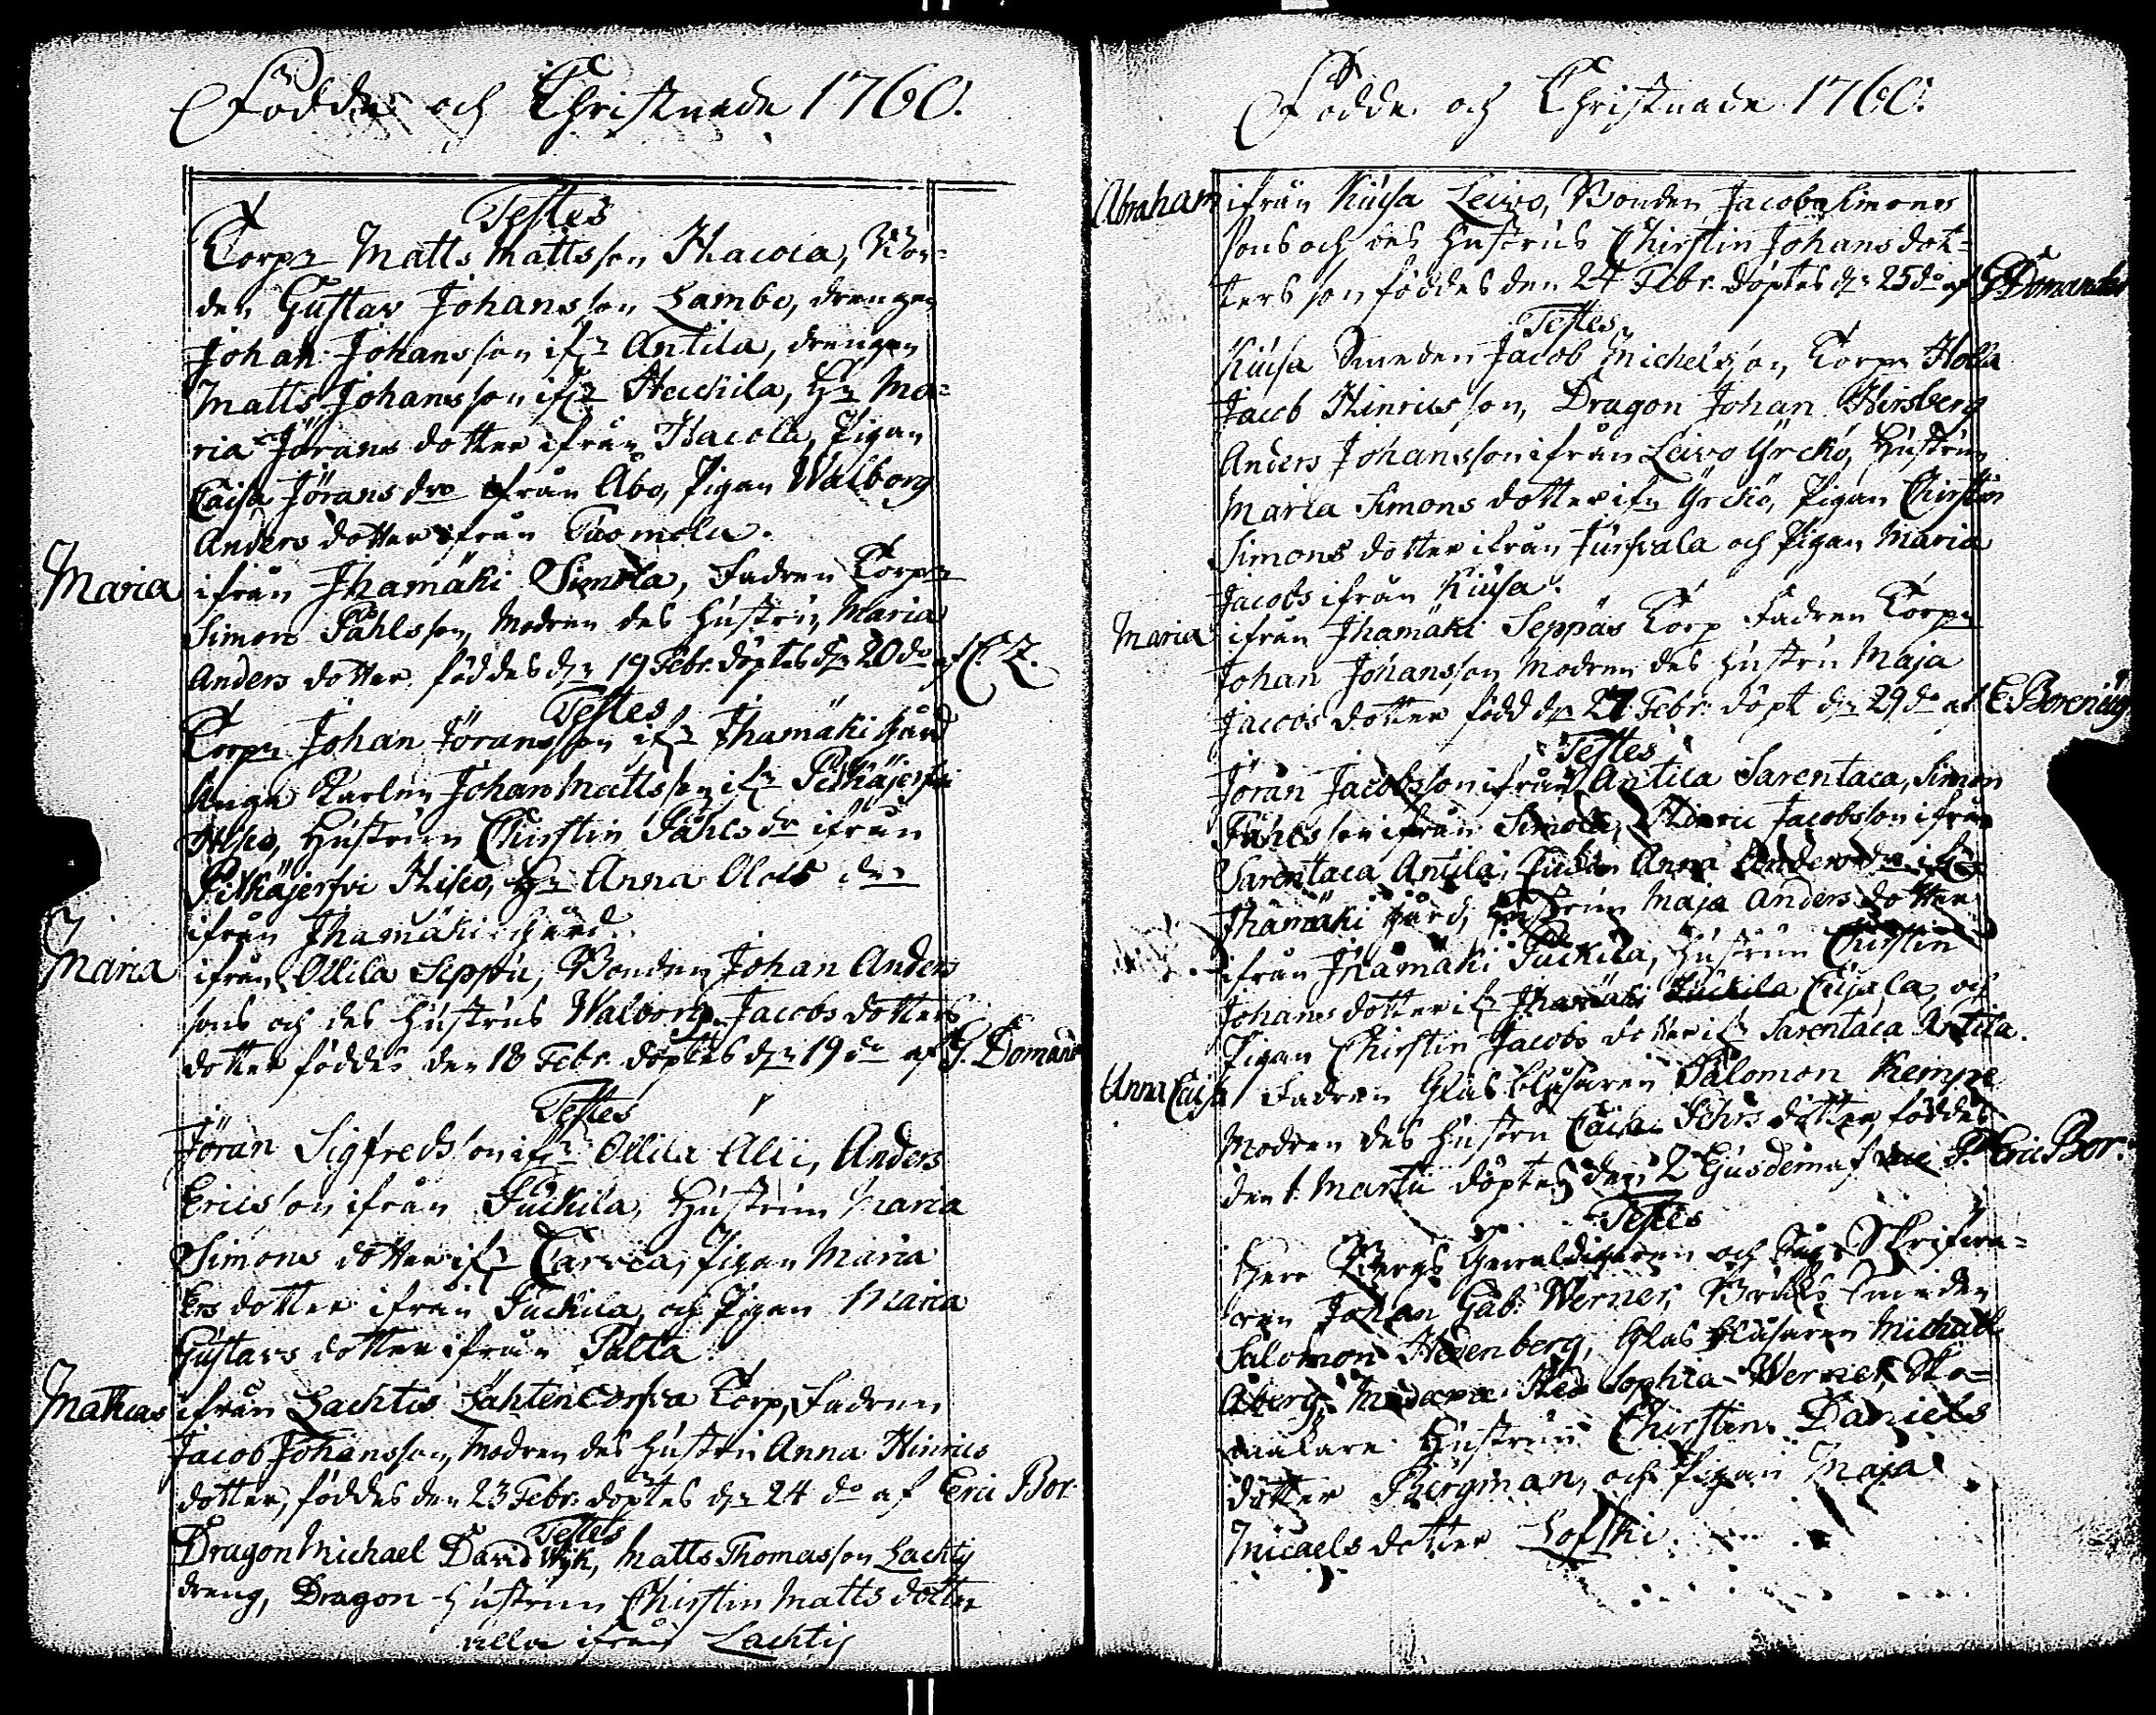 Födde och Christnade 1760.
Testes
Torpn Matts Mattsson Hacola, Bon-
den Gustav Johansson Lambo, drengen
Johan Johansson ifn Antila, drengen
Matts Johansson ifn Heckila, Hn Ma-
ria Jörans dotter ifrån Hacola, Pigan
Caisa Jörans dro ifrån Åbo, Pigan Walborg
Anders dotter ifrån Tuomola.
Maria ifrån Jhamäki Simola, Fadren Torpn
Simon Påhlsson, Modren des Hustru Maria
Anders dotter föddes dn 19 Febr. döptes dn 20 do af
Testes
Torpn Johan Jöransson ifn Jhamäki Hård
Unga Karlen Johan Mattsson ifn Pitkäjerfvi
Hisco, Hustrun Chirstin Påhls dr ifrån
Pitkäjerfvi Hisco, Hn Anna Olofs dn
ifrån Jhamäki Hård.
Maria ifrån Ollila Seppä, Bonden Johan Anders
sons och des Hustrus Walborg Jacobs dotters
dotter föddes den 18 Febr. döptes dn 19 do af G. Domand
Testes
Jöran Sigfredsson ifn Ollila Alii, Anders
Ericsson ifrån Puckila, Hustrun Maria
Simons dotter ifn Carvia, Pigan Maria
Ers dotter ifrån Puckila, och Pigan Maria
Gustavs dotter ifrån Palta.
Mathias ifrån Lachtis Lähtencorfva Torp, Fadren
Jacob Johansson, Modren des Hustru Anna Hinrics
dotter, föddes den 23 Febr. döptes dn 24 do af Eric Bor.
Testes
Dragon Michael David Wijk, Matts Thomasson Lachtis
dreng, Dragon Hustrun Chirstin Matts dotter
alla ifrån Lachtis
Födde och Christnade 1760.
Abraham ifrån Kiusa Leivo, Bonden Jacob Simons
sons och des Hustrus Chirstin Johans dot-
ters son föddes den 24 Febr. döptes dn 25 do af G. Domander
Testes
Kiusa Smeden Jacob Michelsson, Torpn Holla
Jacob Hinricsson, Dragon Johan Hirsberg
Anders Johansson ifrån Leivo Yrckö, Hustrun
Maria Simons dotter ifn Yrckö, Pigan Chirstin
Simons dotter ifrån Jursvala och Pigan Maria
Jacobs ifrån Kiusa.
Maria ifrån Jhamäki Seppäs Torp Fadren Torpn
Johan Johansson Modren des Hustru Maja
Jacobs dotter född dn 27 Febr. döpt dn 29 do af E. Borenius
Testes
Jöran Jacobsson ifrån Antila Sarentaca, Simon
Påhlsson ifrån Simola, Hinric Jacobsson ifrån
Sarentaca Antila, Anna Anders dn ifn
Jhamäki Hård, Hustrun Maja Anders dotter
ifrån Jhamäki Puckila, Hustrun Chirstin
Johans dotter ifn Jhamäki Cujala, och
Pigan Chirstin Jacobs dotter ifn Sarentaca Antila.
Anna Caisa Fadren Glas blåsaren Salomon Kempe
Modren des Hustru Caisa Johrs dotter, föddes
den 1. Martii döptes den 2 Ejusdem af Eric Bor:
Testes
Herr Bergs Gevaldigeren och Skrifva-
ren Johan Gab. Werner, Bruks Smeden
Salomon Hedenberg, Glas blåsaren Michael
Åberg, Hed. Sophia Werner,
makare Hustrun Chirstin Daniels
dotter Bergman, och Pigan Maja
Micaels dotter Lofski.